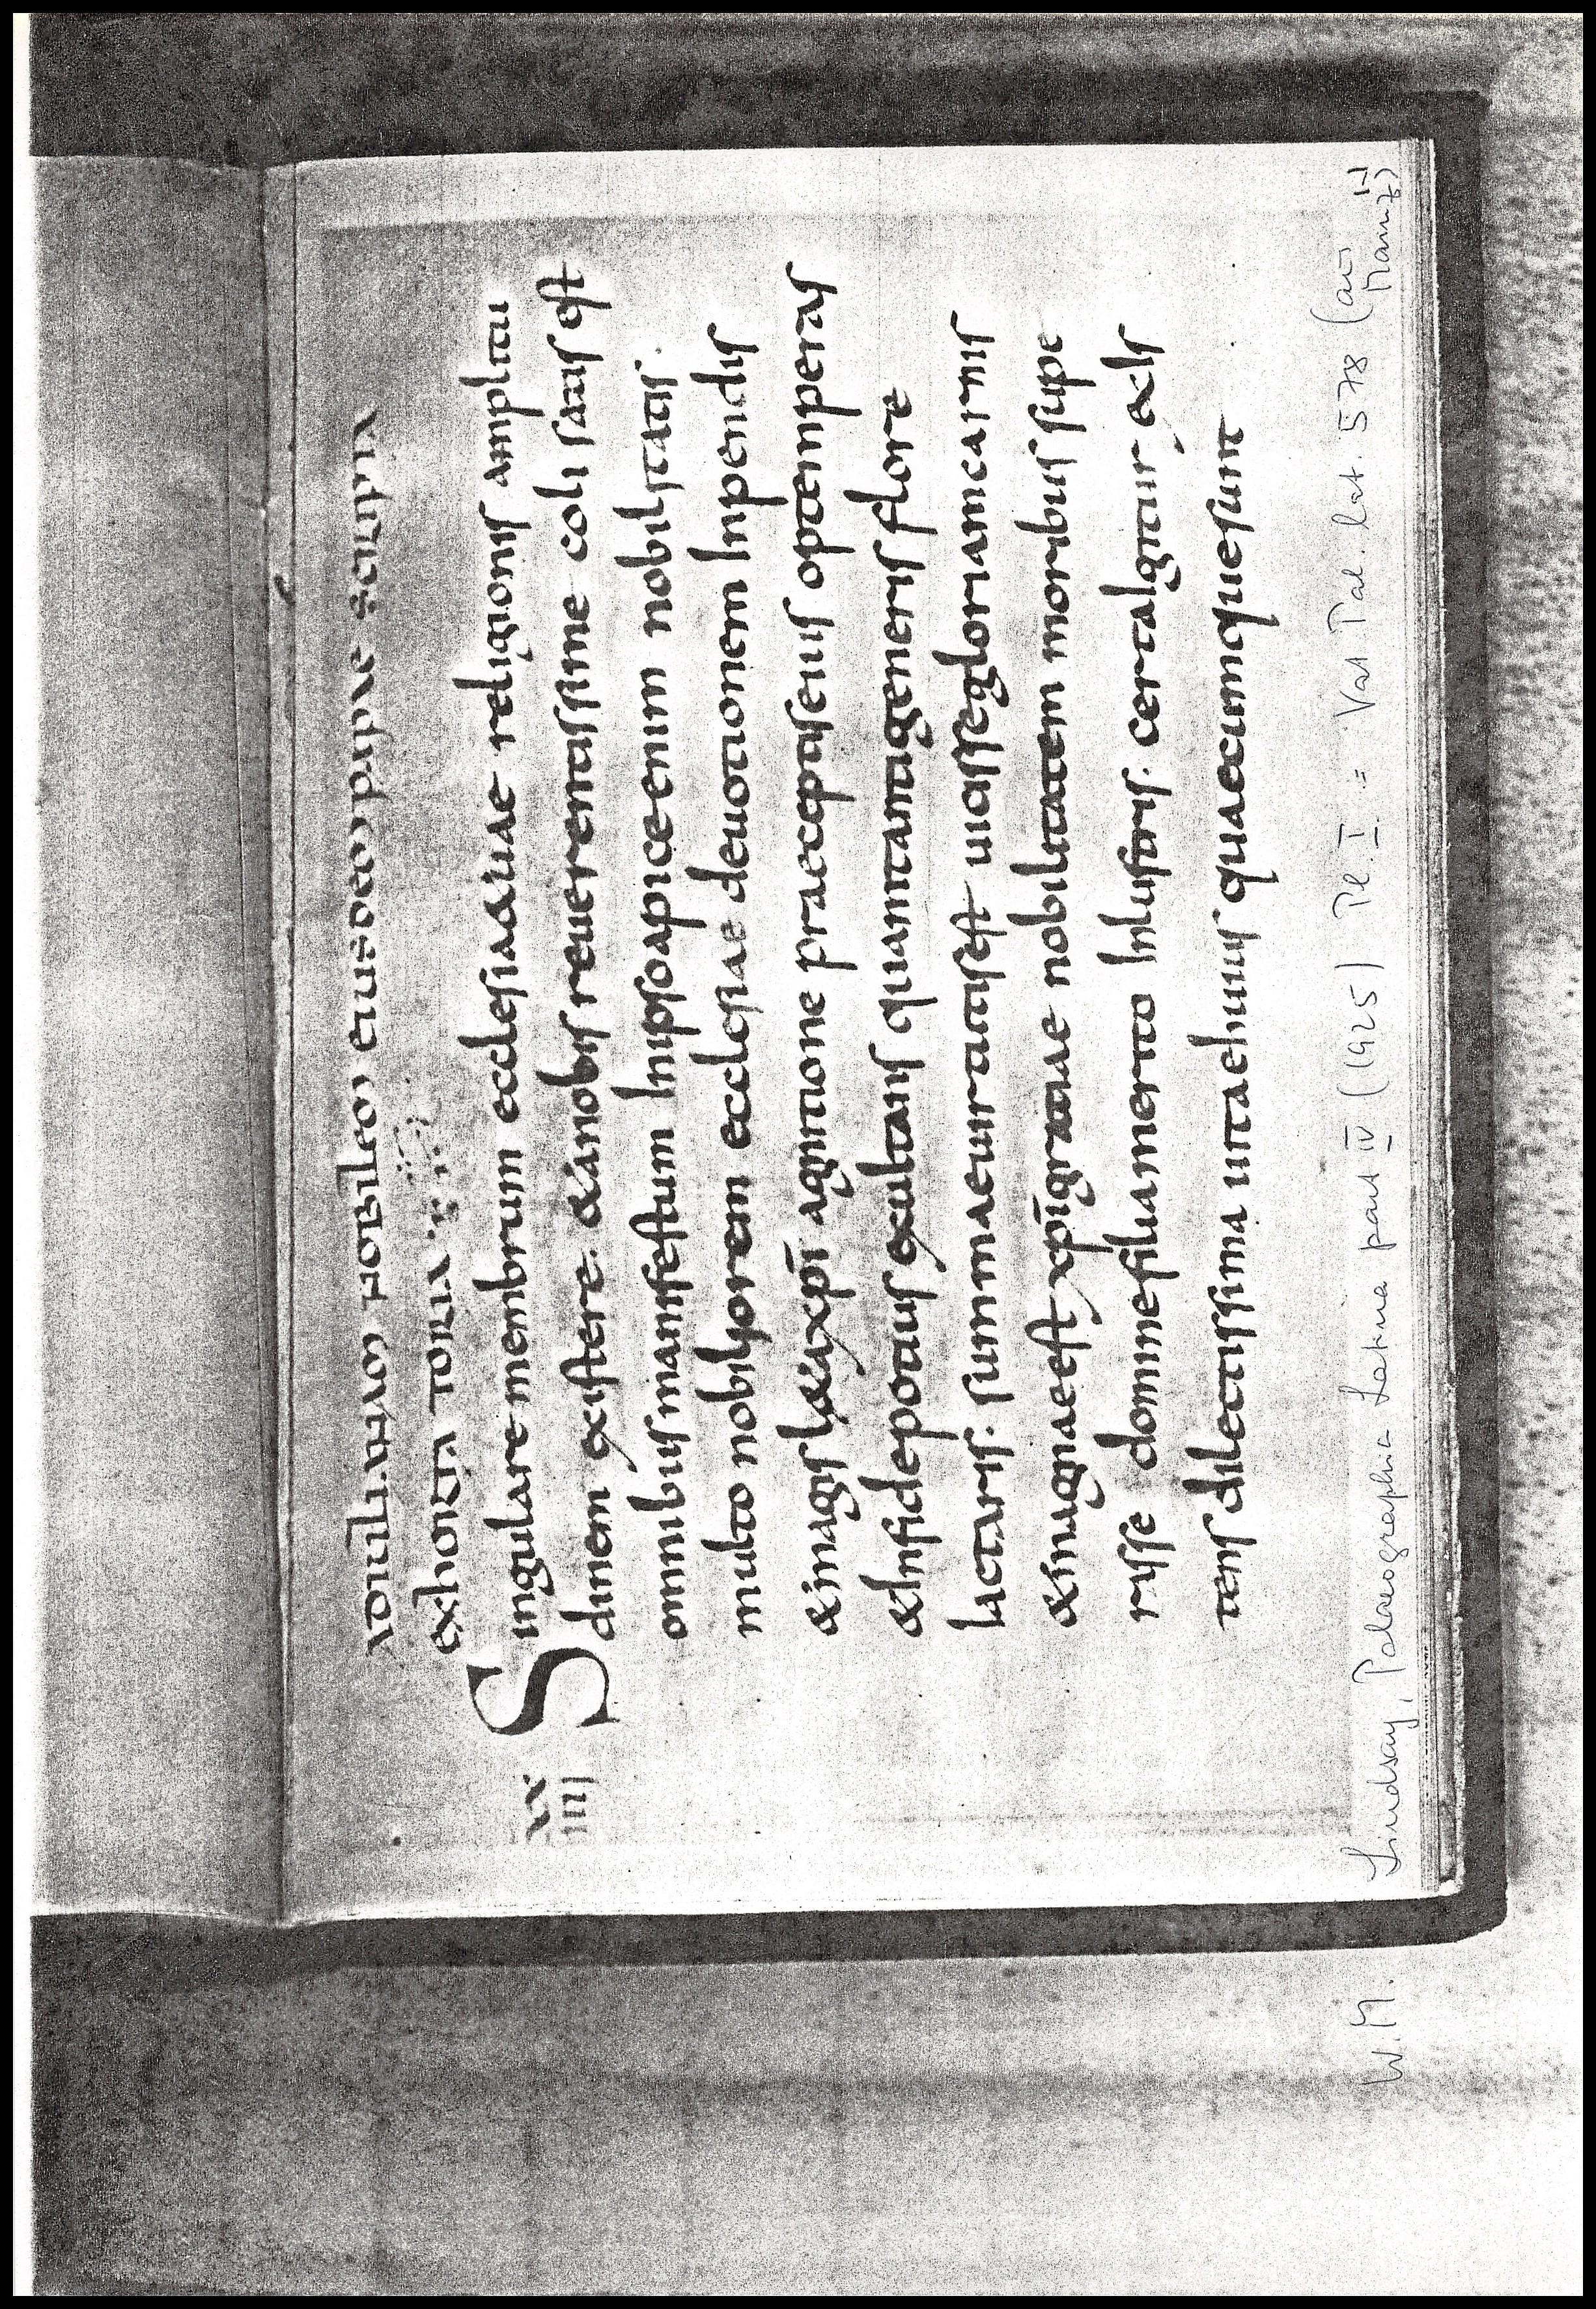 ADIULIANAM NOBILEM EIUSDEMPAPAE SCRIPTA
EXHORTATORIA
XX
IIII
Singularemembrum ecclesiae&uae religionis amplitu
dinem existere. &anobis reuerentissime coli satis est
omnibusmanifestum Inipsoapiceenim nobilitatis.
multo nobiliorem ecclesiae deuotionem Inpendis
&magis l&axpī agnitione praeceptiseius optemperas
&Infidepotius exultans quamtantigeneris flore
lactaris. summaeuirtutisest uicissegloriamcarnis
&magnaeest xpīgratiae nobilitatem moribus supe
risse domnefiliamerito Inlustris. certaigitur &cls
tens dilectissima uitaehuius quaecumquesunt
W. M. Lindsay, Palaeographia Latina part IV (1925) Pl. I = Vat Pal. lat. 578 (aū Mainz)